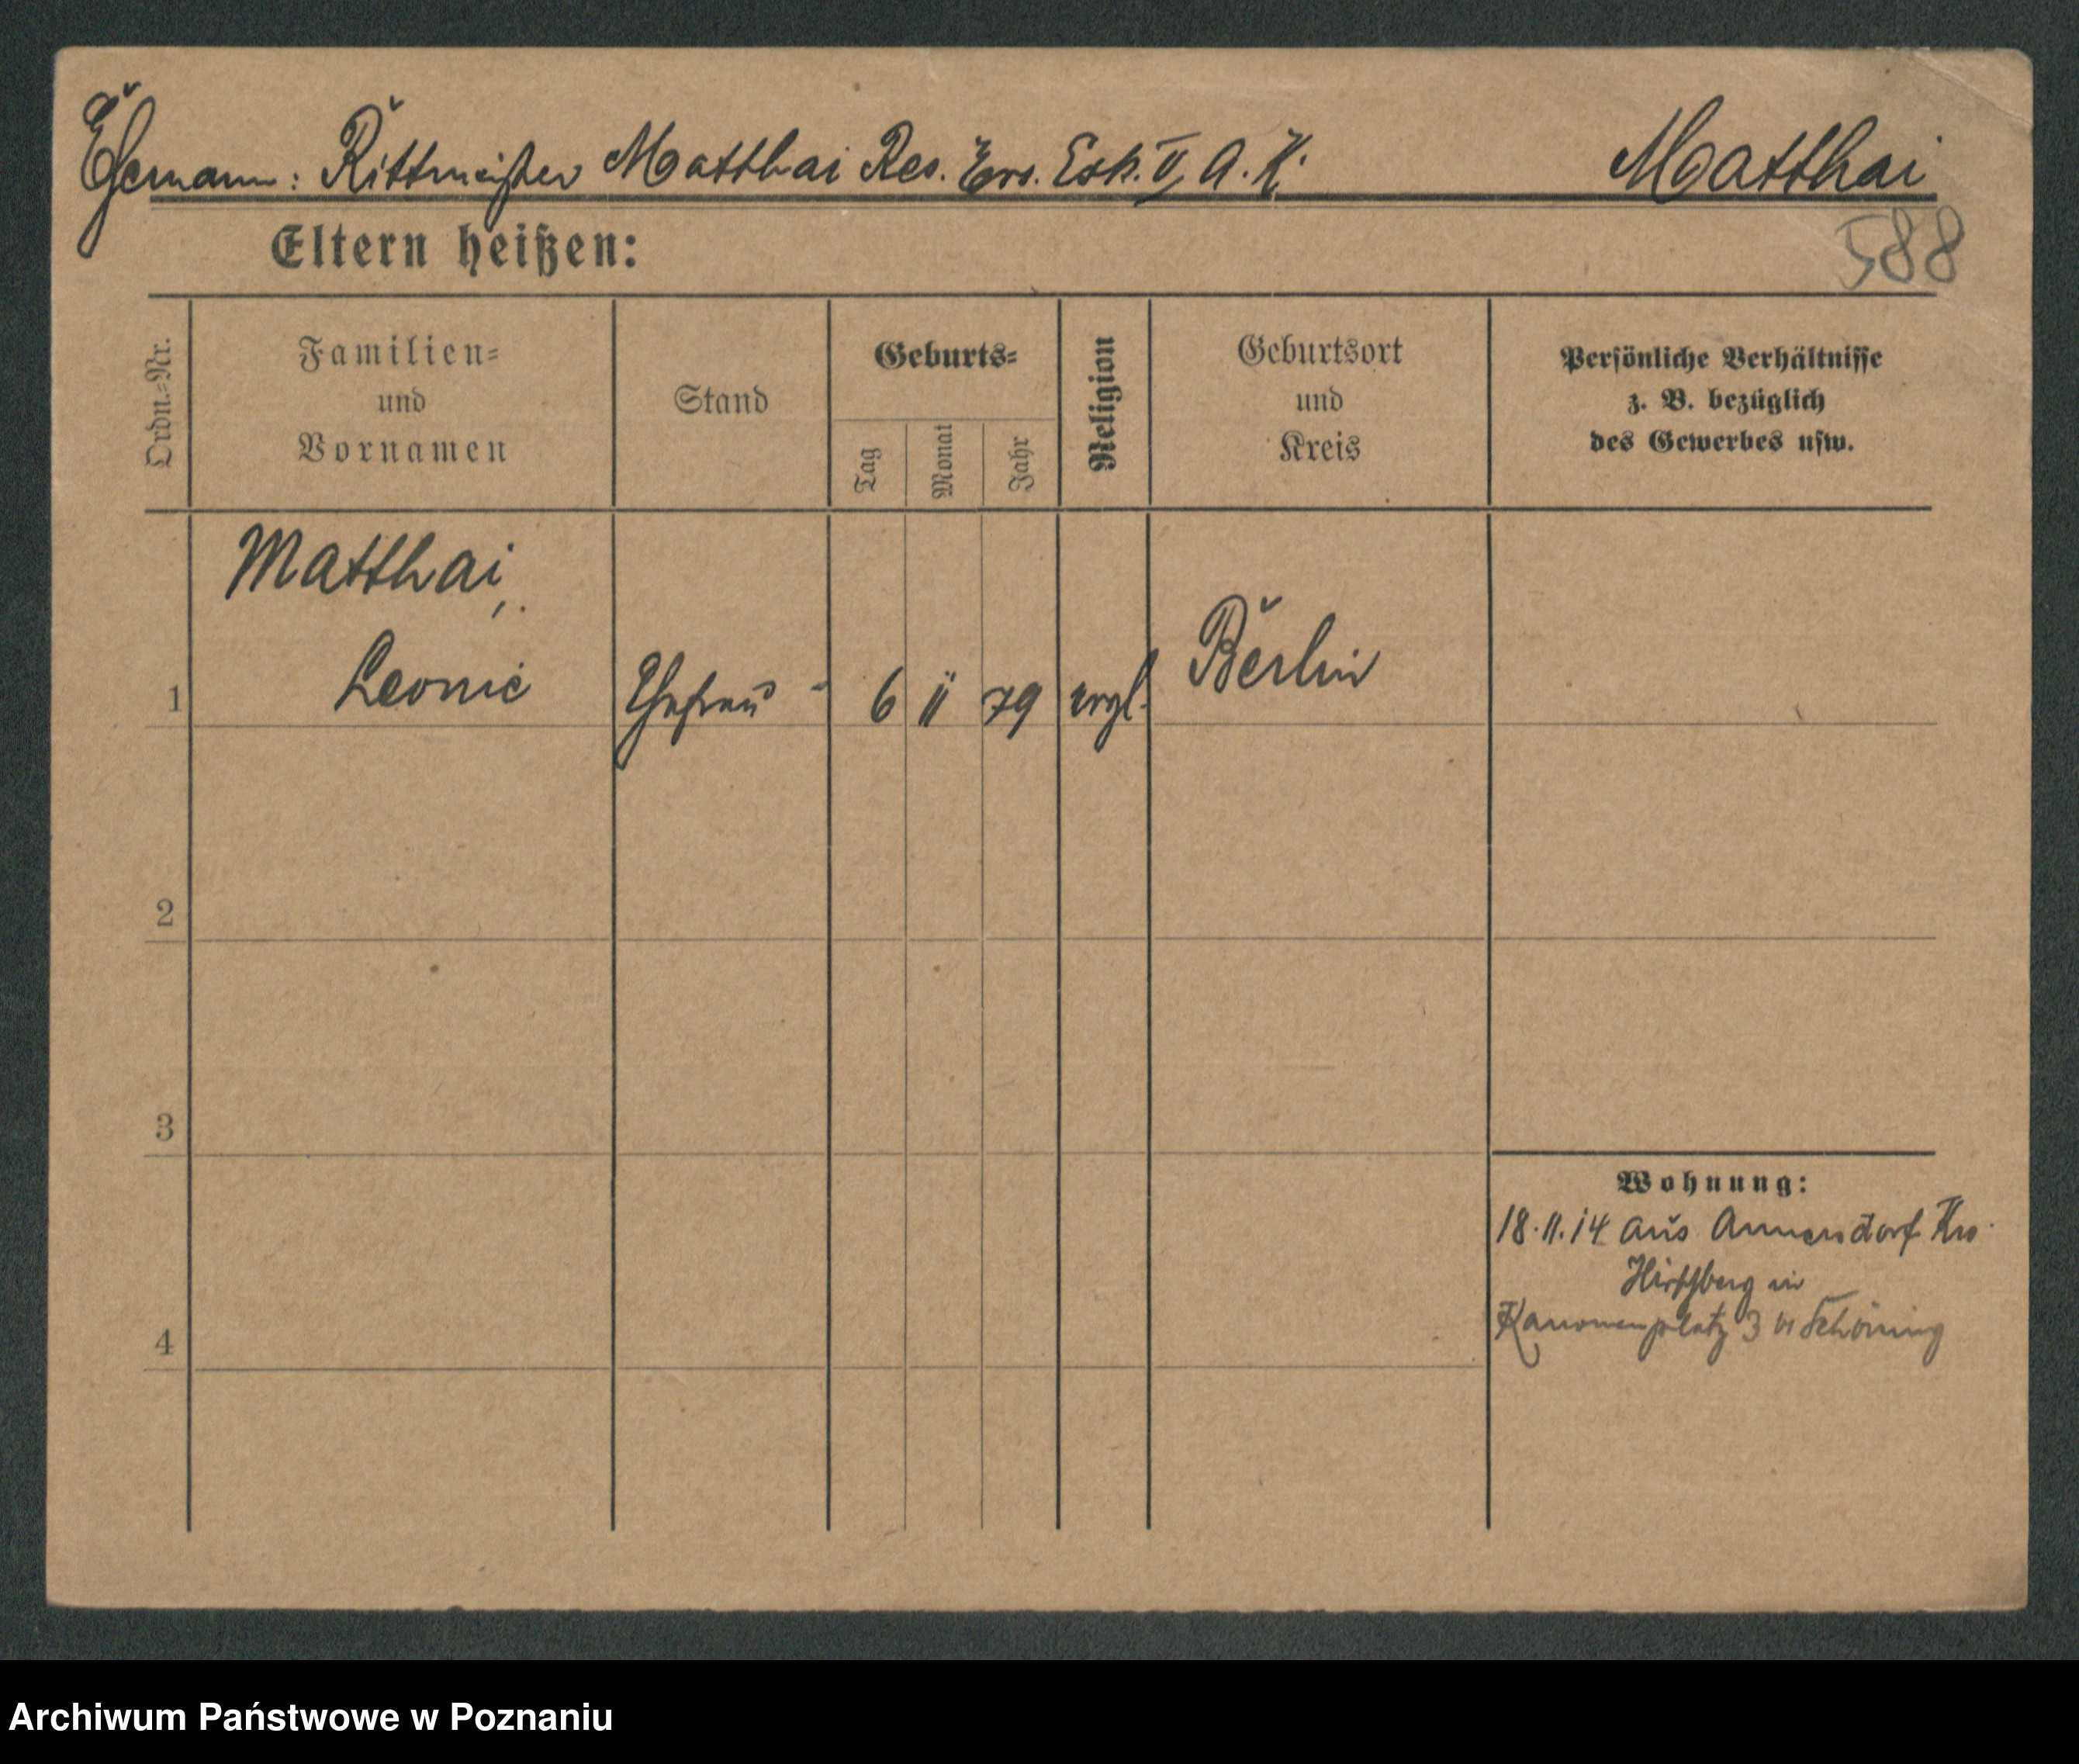 Ehemann: Rittmeister Matthai Res. Ers. Esk. V, A. K. Matthai
588
Eltern heißen:
Ordn.-Nr.
Familien-
und
Vornamen
Stand
Geburts-
Tag
Monat
Jahr
Religion
Geburtsort
und
Kreis
Persönliche Verhältnisse
z. B. bezüglich
des Gewerbes usw.
Matthai,
1 Leonie Ehefrau 6 11 79 evgl. Berlin
2
3
Wohnung:
18.11.14 aus Krs.
Hirschberg in
4 Kanonenplatz 3 Schöning
Archiwum Państwowe w Poznaniu